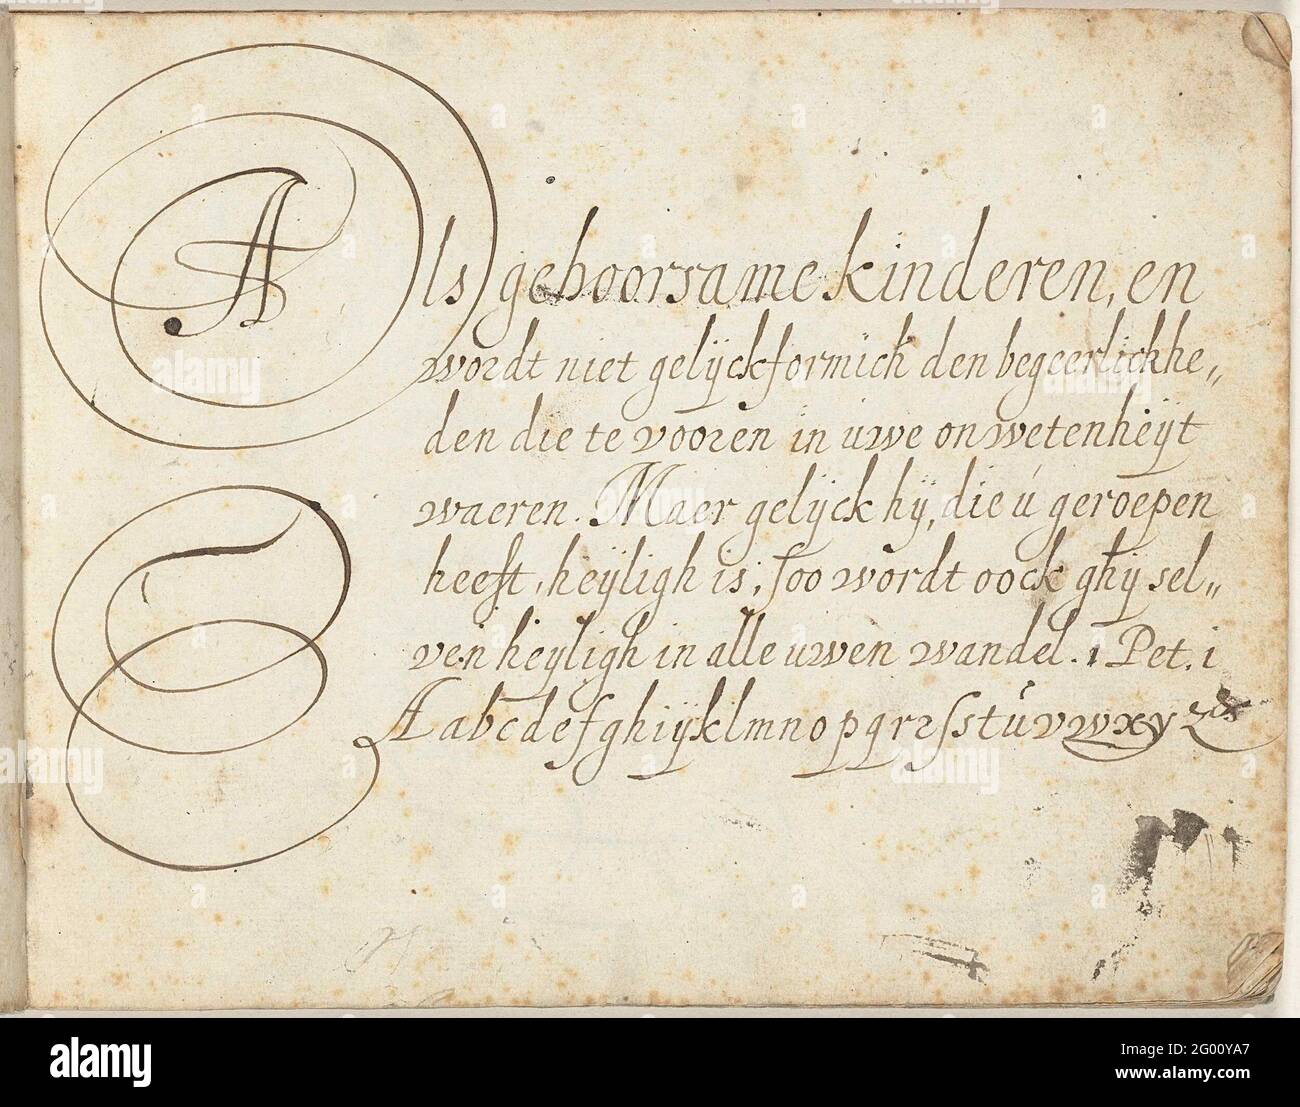 Als gehoorsame kinderen, en
wordt niet gelijckformich den begeerlickhe„
den die te vooren in uwe onwetenheijt
waeren. Maer gelijck hij, die ú geroepen
heeft, heijligh is, soo wordt oock ghij sel„
ven heijligh in alle uwen wandel. 1 Pet. i
A a b c d e f g h i ij k l m n o p q r 2 ſ s t ú v w x y z &
alamy
Image ID: 2G00YA7
www.alamy.com